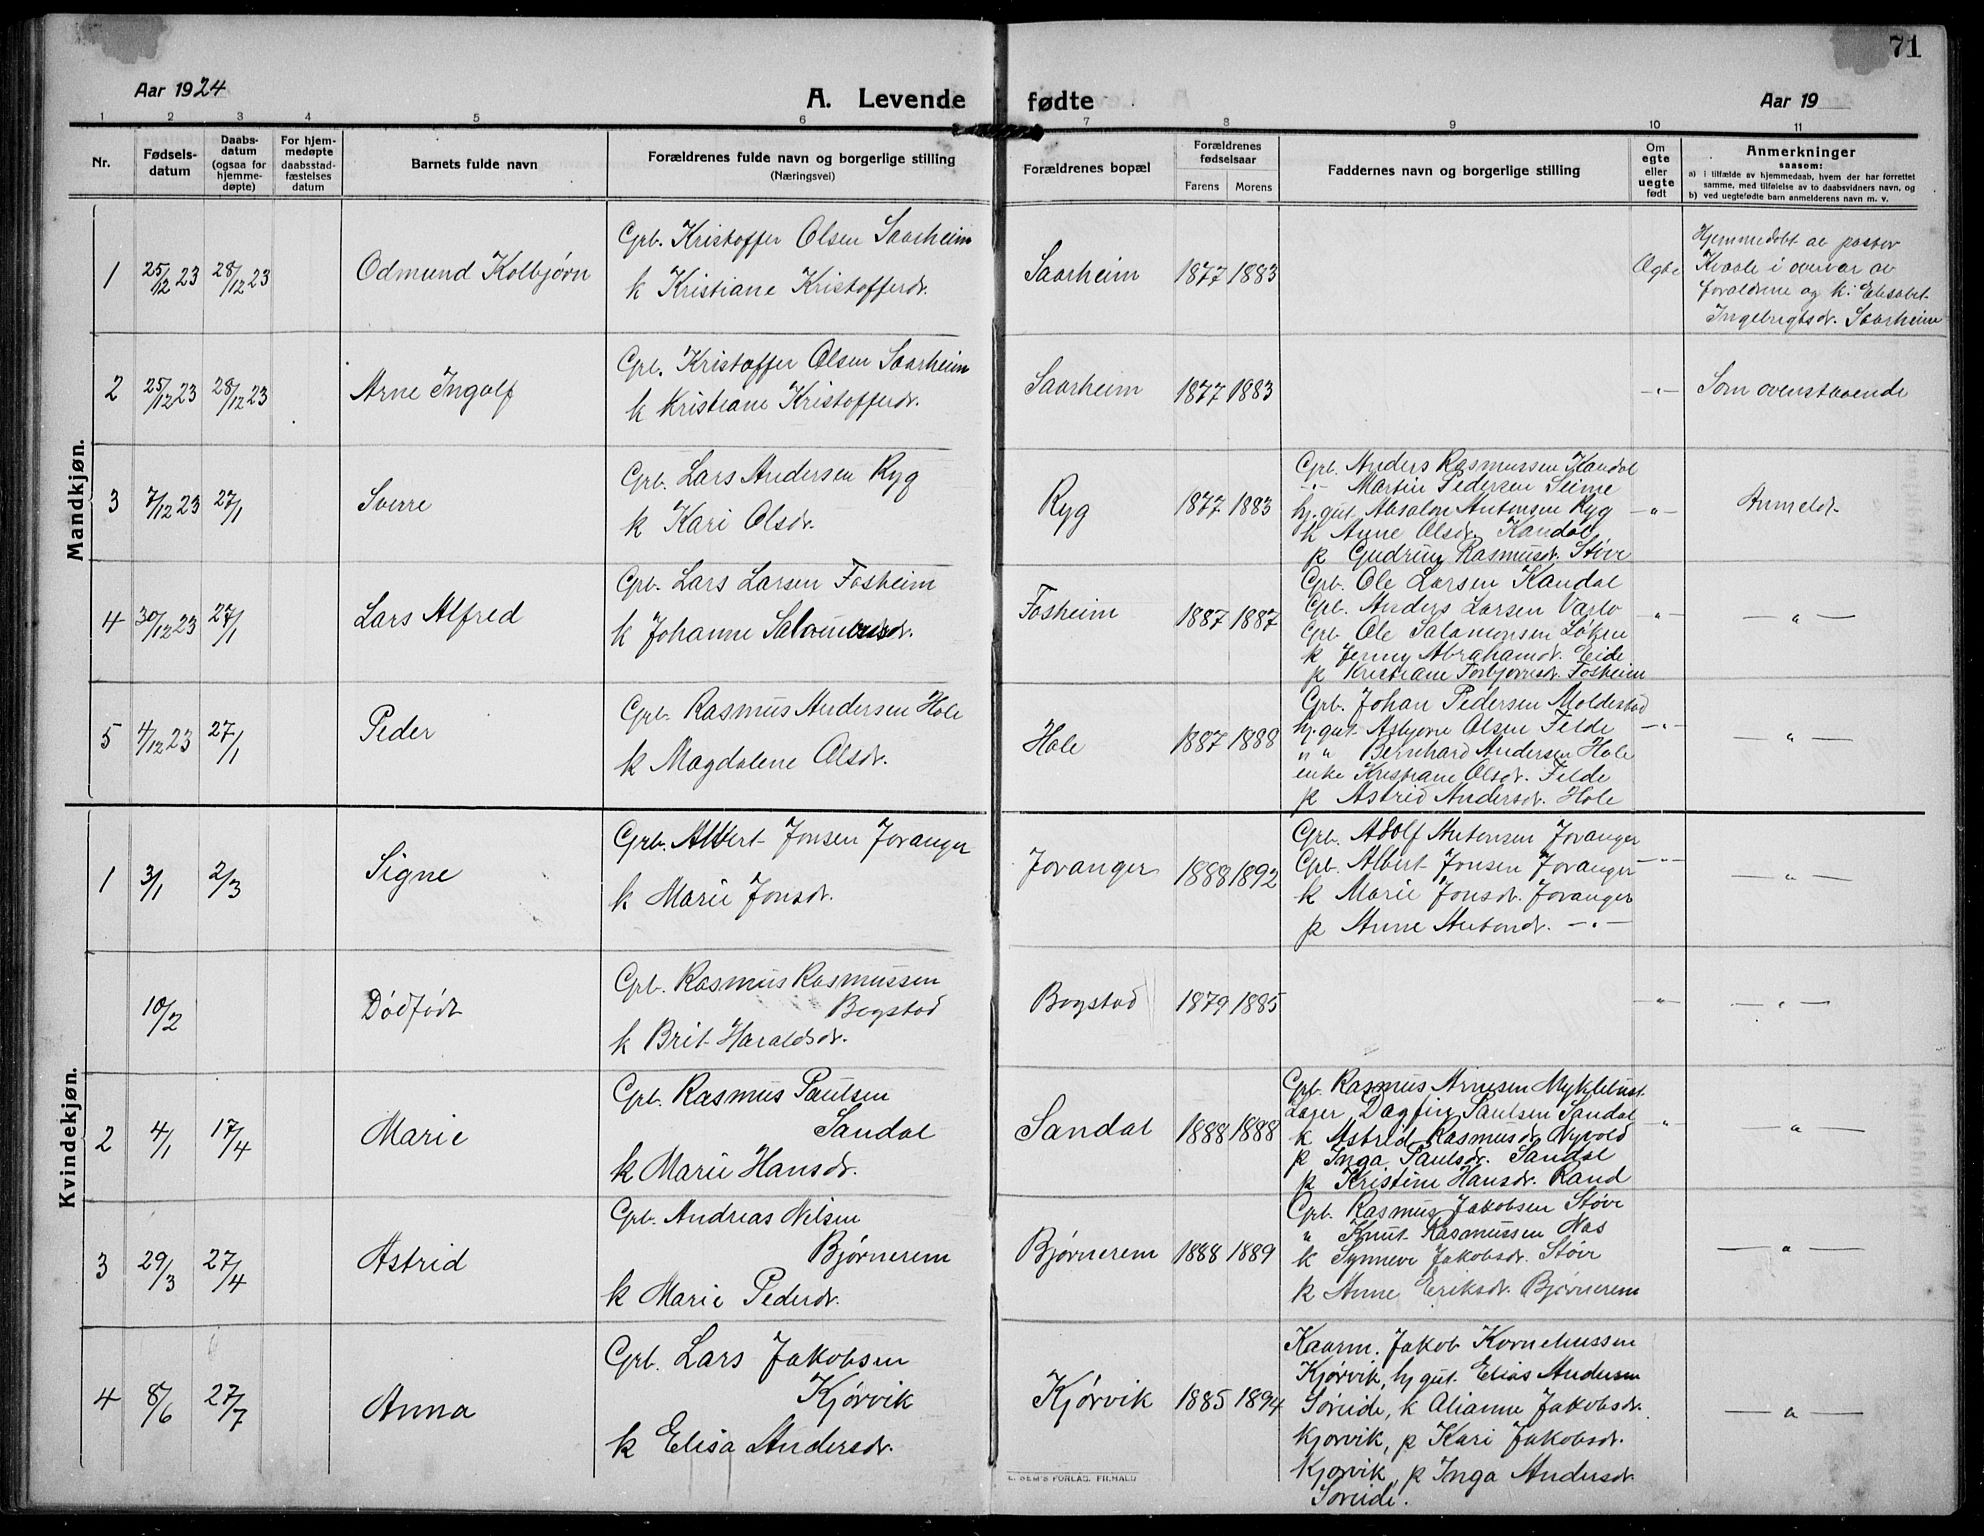 71
Aar 1924
A. Levende fødte
Aar 19
1 2 3 4 5 6 7 8 9 10 11
Nr.
Fødsels-
datum
Daabs-
datum
(ogsaa for
hjemme-
døpte)
For hjem-
medøpte
daabsstad-
fæstelses
datum
Barnets fulde navn
Forældrenes fulde navn og borgerlige stilling
(Næringsvei)
Forældrenes bopæl
Forældrenes
fødselsaar
Farens Morens
Faddernes navn og borgerlige stilling
Om
egte
eller
uegte
født
Anmerkninger
saasom:
a) i tilfælde av hjemmedaab, hvem der har forrettet
samme, med tilføielse av to daabsvidners navn, og
b) ved uegtefødte barn anmelderens navn m. v.
Mandkjøn.
1 25/12 23 28/12 23 Odmund Kolbjørn
Grb. Kristoffer Olsen Saarheim
k Kristiane Kristofferdr.
Saarheim 1877 1883
Ægte
Hjemmedøbt av pastor
Kvaale i overvær av
forældrene og k. Elisabet
Ingebrigtsdr. Saarheim
2 25/12 23 28/12 23 Arne Ingolf
Grb. Kristoffer Olsen Saarheim
k Kristiane Kristofferdr.
Saarheim 1877 1883
-"- Som ovenstaaende
3 7/12 23 27/1 Sverre
Grb. Lars Andersen Ryg
k Kari Olsdr.
Ryg 1877 1883
Grb. Anders Rasmussen Kandal
-"- Martin Pedersen Seime
hj.gut Absalon Antonsen Ryg
k Anne Olsdr. Kandal
p Gudrun Rasmusdr. Støve
-"- Anmeldt
4 30/12 23 27/1 Lars Alfred
Grb. Lars Larsen Fosheim
k Johanne Salomonsdr.
Fosheim 1887 1887
Grb. Ole Larsen Kandal
Grb. Anders Larsen Varlo
Grb Ole Salamonsen Løken
k Jenny Abrahamdr. Eide
p Kristiane Torbjørnsdr. Fosheim
-"- -"-
5 4/12 23 27/1 Peder
Grb. Rasmus Andersen Hole
k Magdalene Olsdr.
Hole 1887 1888
Grb. Johan Pedersen Moldestad
hj.gut Asbjørn Olsen Felde
" " Bernhard Andersen Hole
enke Kristiane Olsdr. Felde
p Astrid Andersdr. Hole
-"- -"-
Kvindekjøn.
1 3/1 2/3 Signe
Grb. Albert Jonsen Jovanger
k Marie Jonsdr.
Jovanger 1888 1892
Grb. Adolf Antonsen Jovanger
Grb. Albert Jonsen Jovanger
k Marie Jonsdr. Jovanger
p Anne Antondr. -"-
-"- -"-
10/2 Dødfødt
Grb. Rasmus Rasmussen
Bogstad
k Brit Haraldsdr.
Bogstad 1879 1885
-"- -"-
2 4/1 17/4 Marie
Grb. Rasmus Paulsen
Sandal
k Marie Hansdr.
Sandal 1888 1888
Grb. Rasmus Arnesen Myklebust
Lærer Dagfin Paulsen Sandal
k Astrid Rasmusdr. Nyvold
p Inga Paulsdr. Sandal
p Kristine Hansdr. Rand
-"- -"-
3 29/3 27/4 Astrid
Grb. Andreas Nilsen
Bjørnerem
k Marie Pedersdr.
Bjørnerem 1888 1889
Grb. Rasmus Jakobsen Støve
" Knut Rasmussen Nas
k Synneve Jakobsdr. Støve
k Anne Eriksdr. Bjørnerem
-"-
4 8/6 27/7 Anna
Grb. Lars Jakobsen
Kjørvik
k Elisa Andersdr.
Kjørvik 1885 1894
Kaarm. Jakob Korneliussen
Kjørvik, hj gut. Elias Andersen
Søreide, k Alianne Jakobsdr.
Kjørvik, p Kari Jakobsdr.
Kjørvik, p Inga Andersdr.
Søreide.
-"-
E. SEM'S FORLAG, FR.HALD